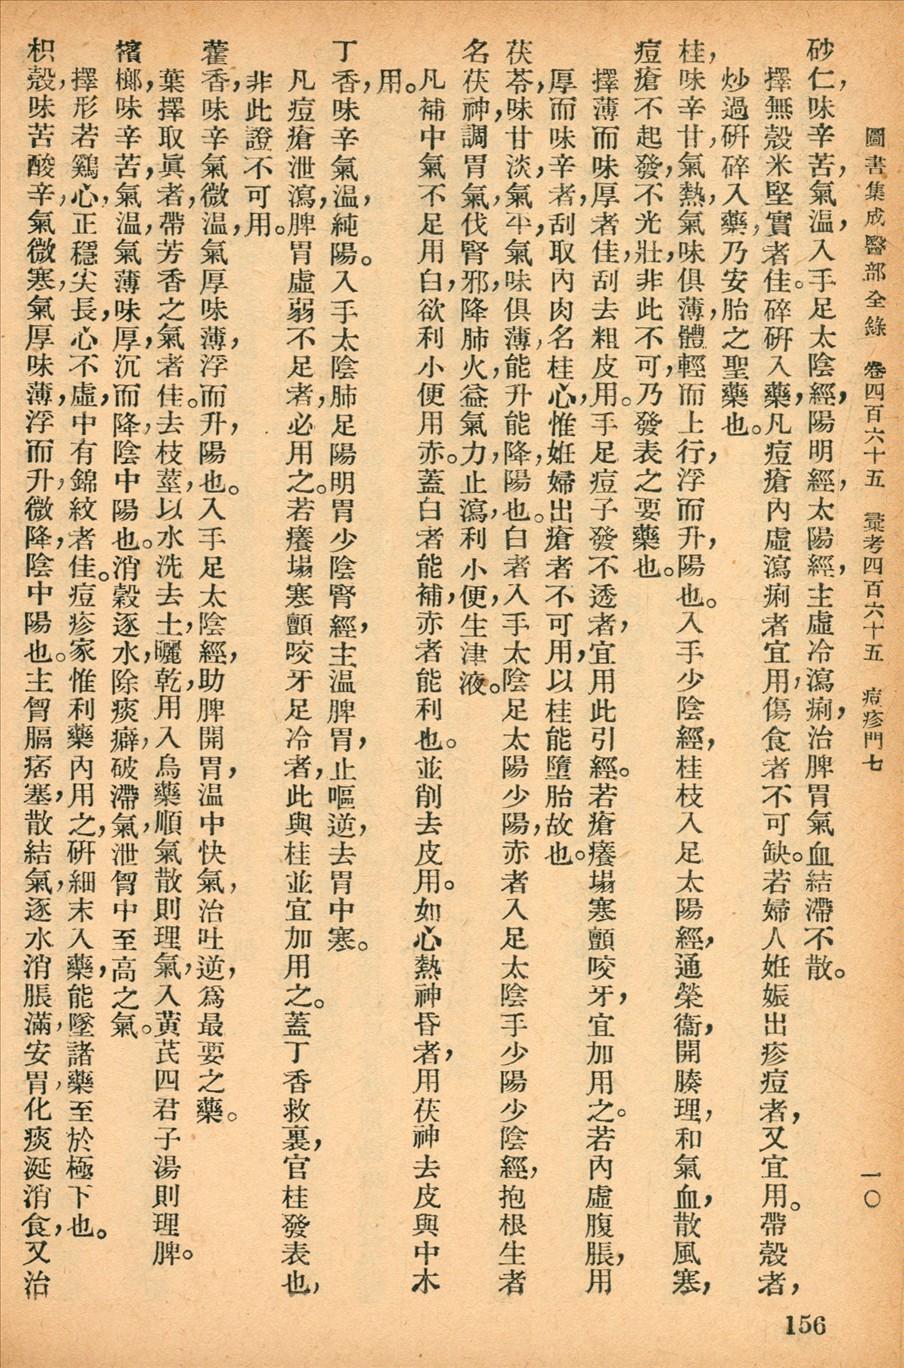 圖書集成醫部全錄　卷四百六十五　彙考四百六十五　痘疹門七　一〇
砂仁，味辛苦，氣温，入手足太陰經，陽明經，太陽經，主虛冷瀉痢，治脾胃氣血結滯不散。
擇無殼米堅實者佳。碎研入藥，凡痘瘡內虛瀉痢者宜用，傷食者不可缺。若婦人姙娠出疹痘者，又宜用。帶殼者，
炒過研碎入藥，乃安胎之聖藥也。
桂，味辛甘，氣熱，氣味俱薄，體輕而上行，浮而升，陽也。入手少陰經，桂枝入足太陽經，通榮衞，開腠理，和氣血，散風寒，
痘瘡不起發，不光壯，非此不可，乃發表之要藥也。
擇薄而味厚者佳，刮去粗皮用。手足痘子發不透者，宜用此引經。若瘡癢塲寒顫咬牙，宜加用之。若內虛腹脹，用
厚而味辛者，刮取內肉名桂心，惟姙婦出瘡者不可用，以桂能墮胎故也。
茯苓，味甘淡，氣平，氣味俱薄，能升能降，陽也。白者入手太陰足太陽少陽，赤者入足太陰手少陽少陰經，抱根生者
名茯神，調胃氣，伐腎邪，降肺火，益氣力，止瀉，利小便，生津液。
凡補中氣不足用白，欲利小便用赤。蓋白者能補，赤者能利也。並削去皮用。如心熱神昏者，用茯神去皮與中木
用。
丁香，味辛氣温，純陽。入手太陰肺足陽明胃少陰腎經，主温脾胃，止嘔逆，去胃中寒。
凡痘瘡泄瀉，脾胃虛弱不足者，必用之。若癢塲寒顫咬牙足冷者，此與桂並宜加用之。蓋丁香救裏，官桂發表也，
非此證不可用。
藿香，味辛氣微温，氣厚味薄，浮而升，陽也。入手足太陰經，助脾開胃，温中快氣，治吐逆，爲最要之藥。
葉擇取眞者，帶芳香之氣者佳。去枝莖，以水洗去土，曬乾，用入烏藥順氣散則理氣，入黃芪四君子湯則理脾。
檳榔，味辛苦，氣温，氣薄味厚，沉而降，陰中陽也。消穀逐水，除痰癖，破滯氣，泄胷中至高之氣。
擇形若鷄心，正穩尖長，心不虛，中有錦紋者佳。痘疹家惟利藥內用之，研細末入藥，能墜諸藥至於極下也。
枳殼，味苦酸辛，氣微寒，氣厚味薄，浮而升，微降，陰中陽也。主胷膈痞塞，散結氣，逐水消脹滿，安胃，化痰涎消食，又治
156